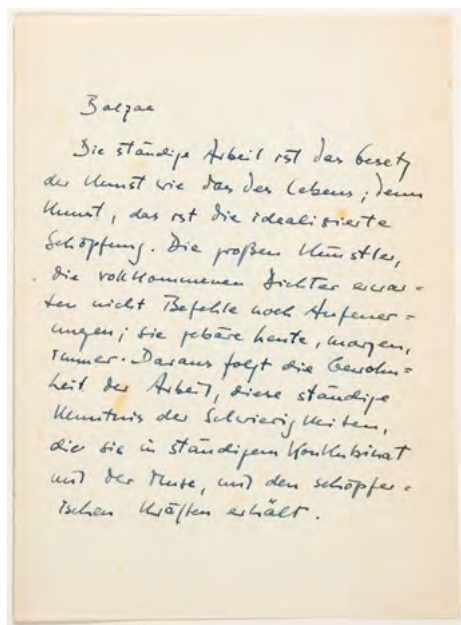 Balzac
Die ständige Arbeit ist das Gesetz
der Kunst wie das des Lebens; denn
Kunst, das ist die idealisierte
Schöpfung. Die großen Künstler,
die vollkommenen Dichter erwar=
ten nicht Befehle noch Anfeuer=
ungen; sie gebäre heute, morgen,
immer. Daraus folgt die Gewohn=
heit der Arbeit, diese ständige
Kenntnis der Schwierigkeiten,
die sie in ständigem Konkubinat
mit der Muse, mit den schöpfer=
ischen Kräften erhält.